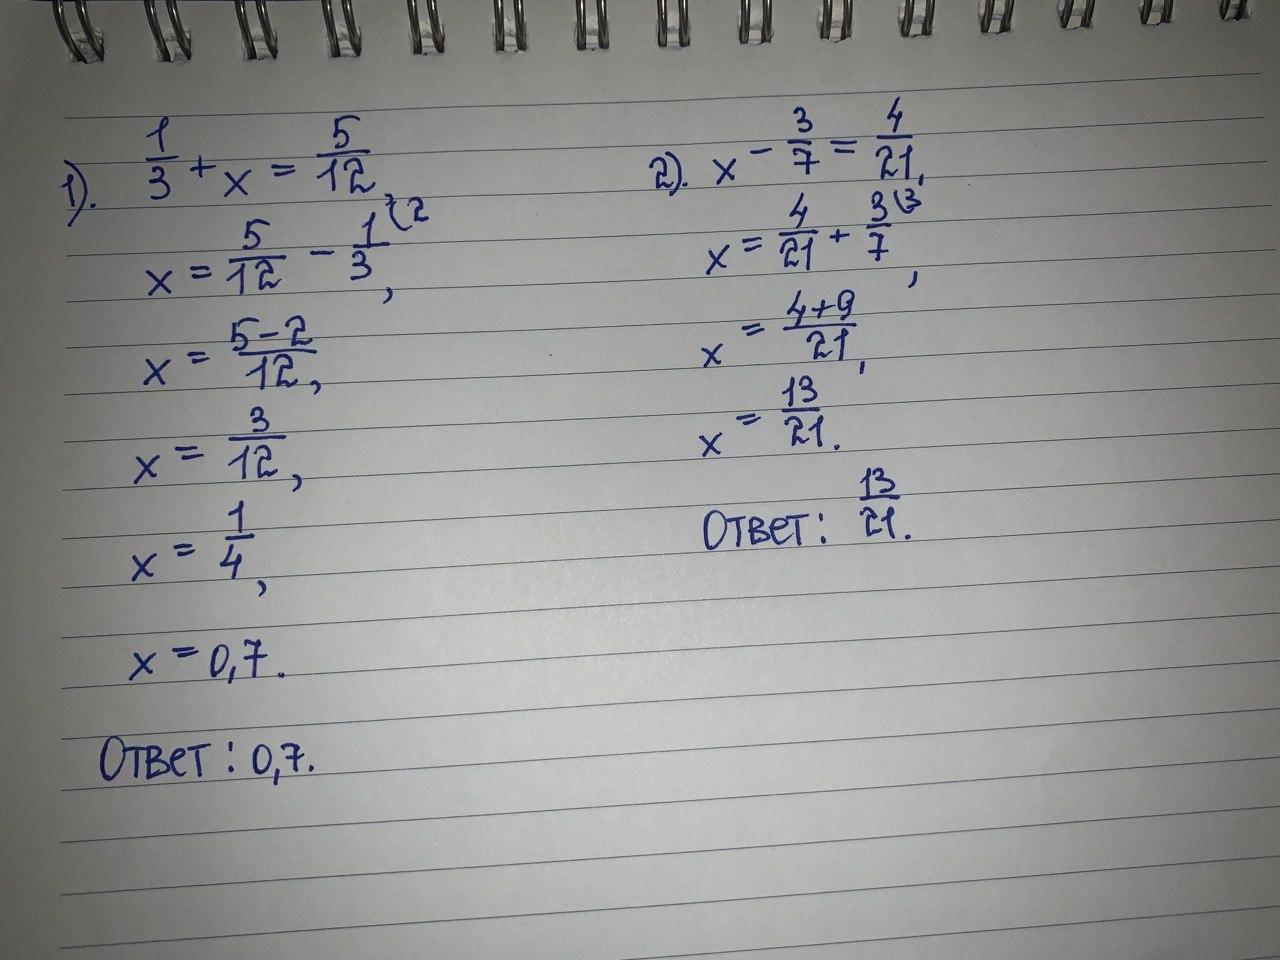 1). 1/3 + x = 5/12,
x = 5/12 - 1/3 \2,
x = 5-2/12,
x = 3/12,
x = 1/4,
x = 0,7.
Ответ: 0,7.
2). x - 3/7 = 4/21,
x = 4/21 + 3/7 \3,
x = 4+9/21,
x = 13/21.
Ответ: 13/21.